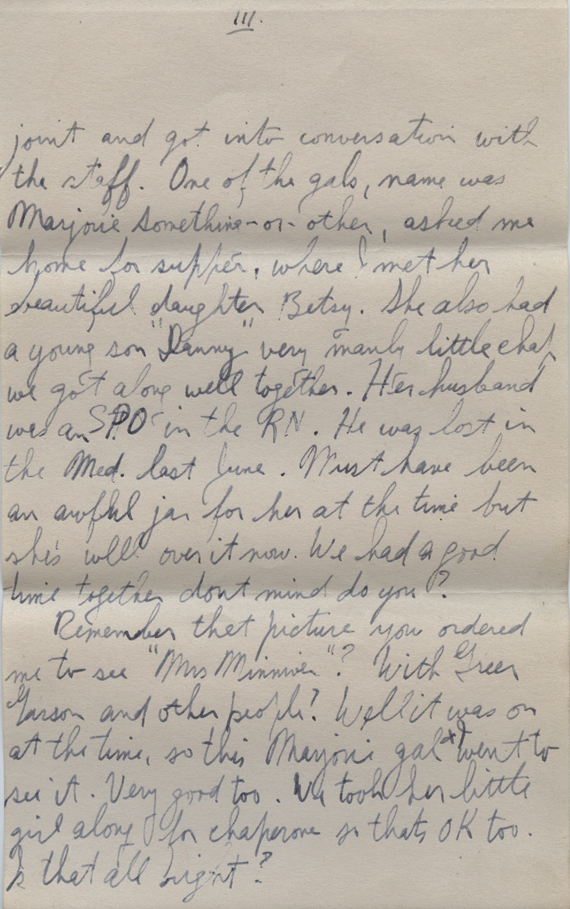 III.
joint and got into conversation with
the staff. One of the gals, name was
Marjorie Something-or-other, asked me
home for supper, where I met her
beautiful daughter Betsy. She also had
a young son "Danny" very manly little chap,
we got along well together. Her husband
was an SPO in the RN. He was lost in
the Med. last June. Must have been
an awful jar for her at the time but
she's well over it now. We had a good
time together dont mind do you?
Remember that picture you ordered
me to see "Mrs Minniver"? With Greer
Garson and other people? Well it was on
at the time, so this Marjorie gal & I went to
see it. Very good too. We took her little
girl along for chaperone so thats OK too.
Is that all right?